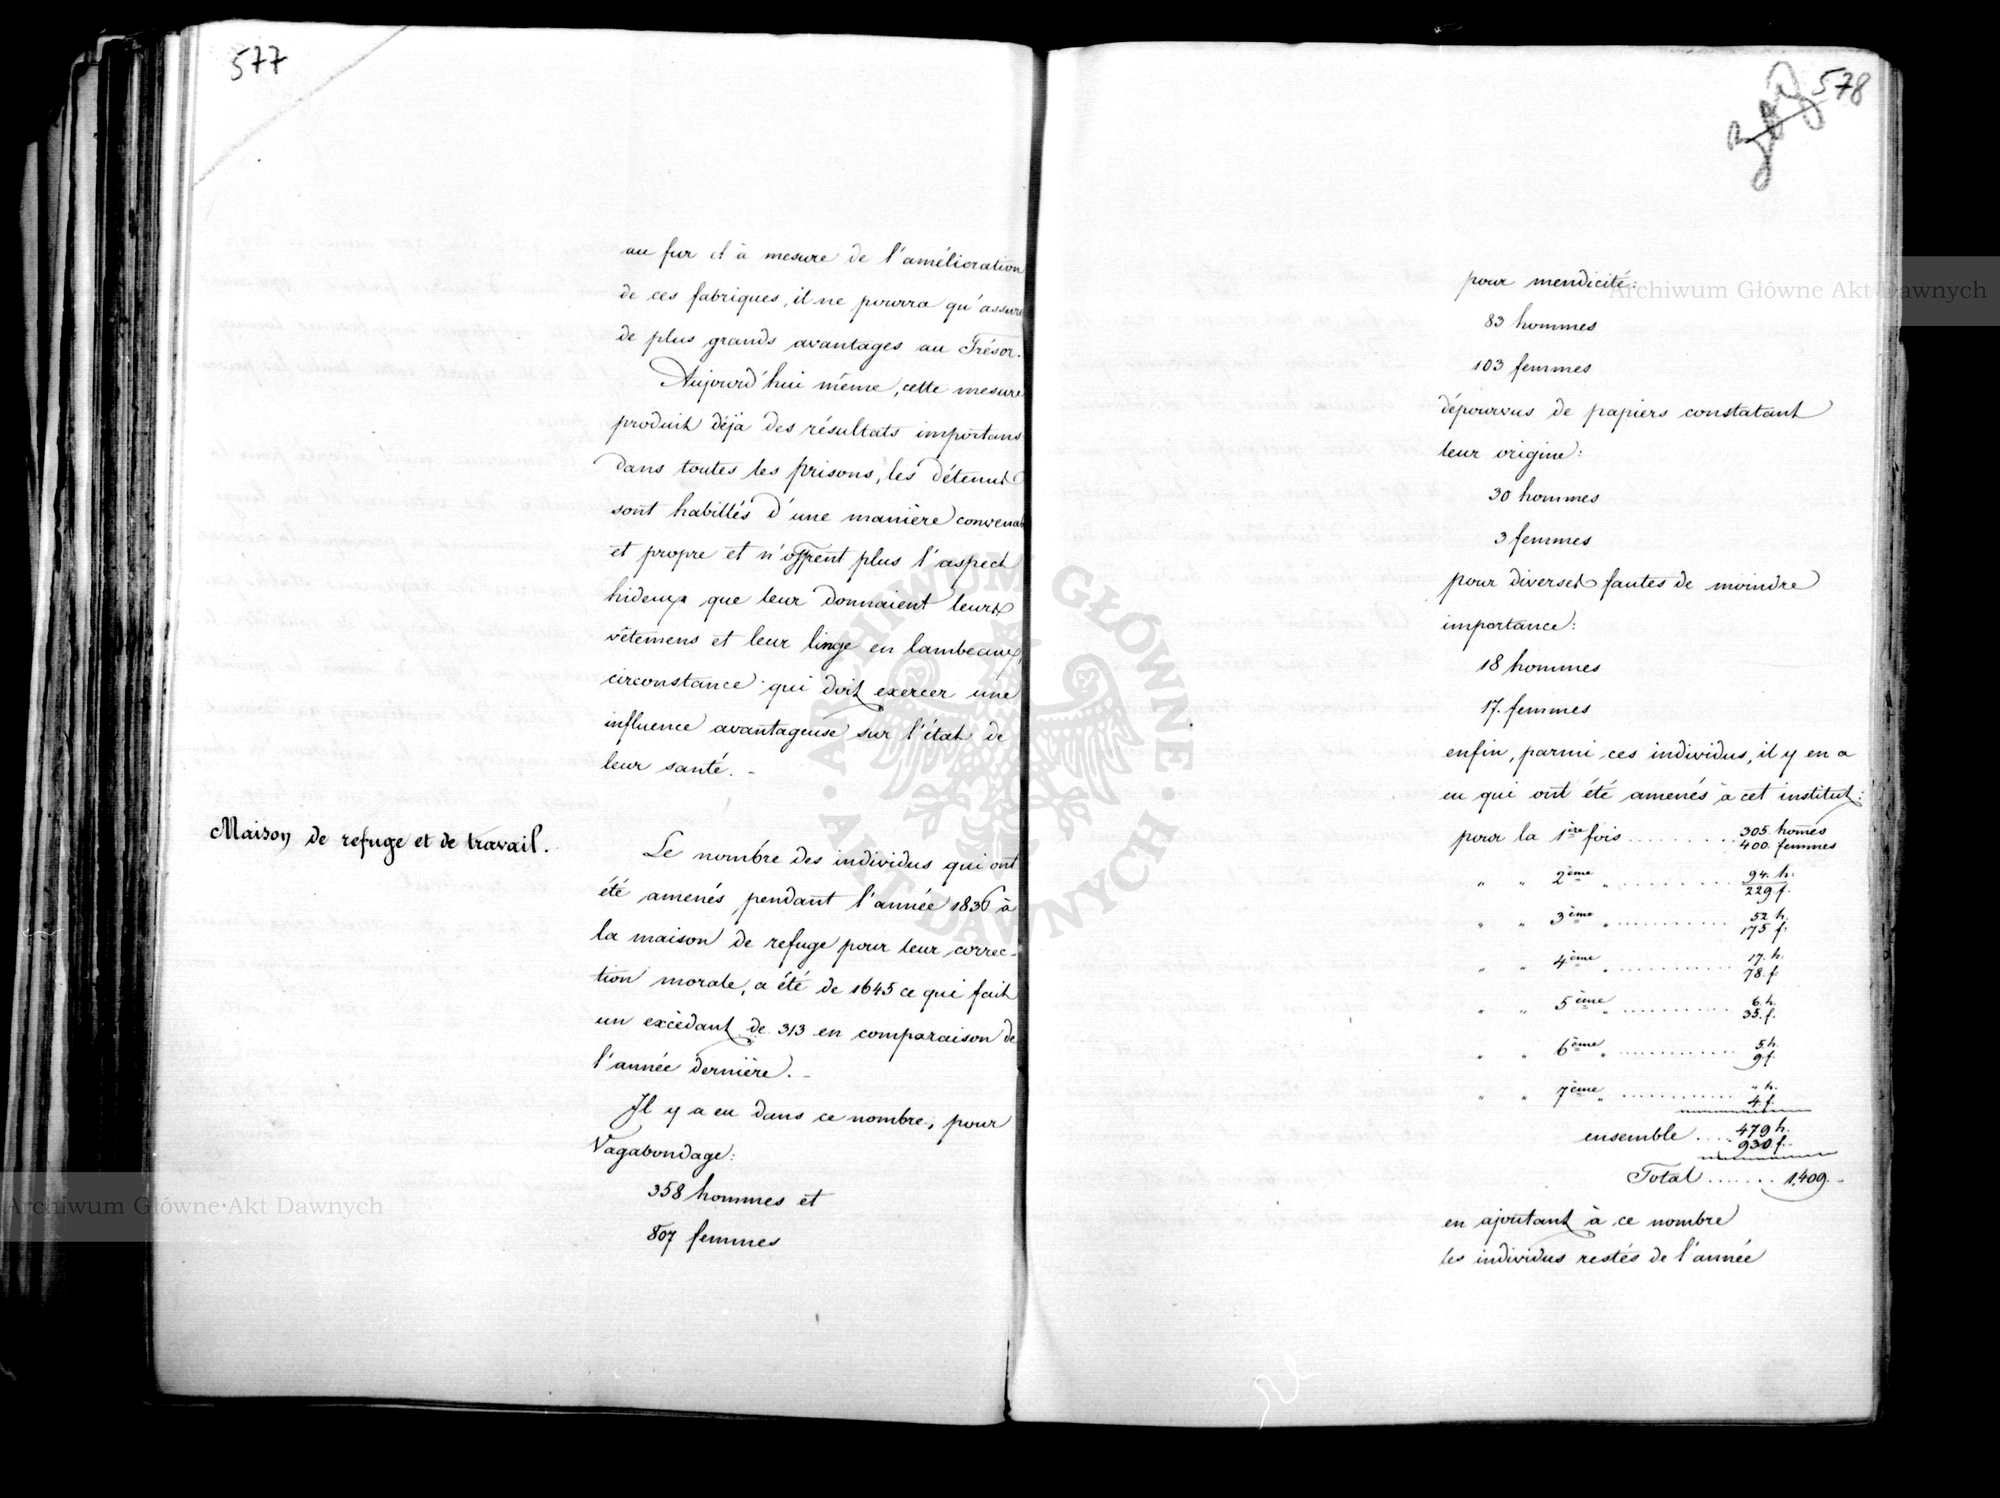 577
au fur et à mesure de l'amélioration
de ces fabriques, il ne pourra qu'assurer
de plus grands avantages au Trésor.
Aujourd'hui même, cette mesure
produit déjà des résultats importans
dans toutes les prisons, les détenus
sont habillés d'une manière convenab
et propre et n'offrent plus l'aspect
hideux que leur donnaient leurs
vêtemens et leur linge en lambeaux,
circonstance qui doit exercer une
influence avantageuse sur l'état de
leur santé. -
Maison de refuge et de travail.
Le nombre des individus qui ont
été amenés pendant l'année 1836 à
la maison de refuge pour leur correc-
tion morale, a été de 1645 ce qui fait
un excédant de 313 en comparaison de
l'année dernière. -
Il y a eu dans ce nombre, pour
Vagabondage:
358 hommes et
807 femmes
578
pour mendicité:
83 hommes
103 femmes
dépourvus de papiers constatant
leur origine:
30 hommes
3 femmes
pour diverses fautes de moindre
importance:
18 hommes
17. femmes
enfin, parmi ces individus, il y en a
eu qui ont été amenés à cet institut:
pour la 1ère fois ........ 305. homes
400. femmes
" " 2ème " ......... 94. h.
229 f.
" " 3ème " ......... 52 h.
175 f.
" " 4ème " ......... 17. h.
78. f.
" " 5ème " ......... 6. h.
35. f.
" " 6ème " ......... 5 h.
9 f.
" " 7ème " ......... " h.
4. f.
ensemble .... 479 h.
930 f.
Total ....... 1,409. -
en ajoutant à ce nombre
les individus restés de l'année
Archiwum Główne Akt Dawnych
Archiwum Główne Akt Dawnych
· ARCHIWUM GŁÓWNE · AKT DAWNYCH